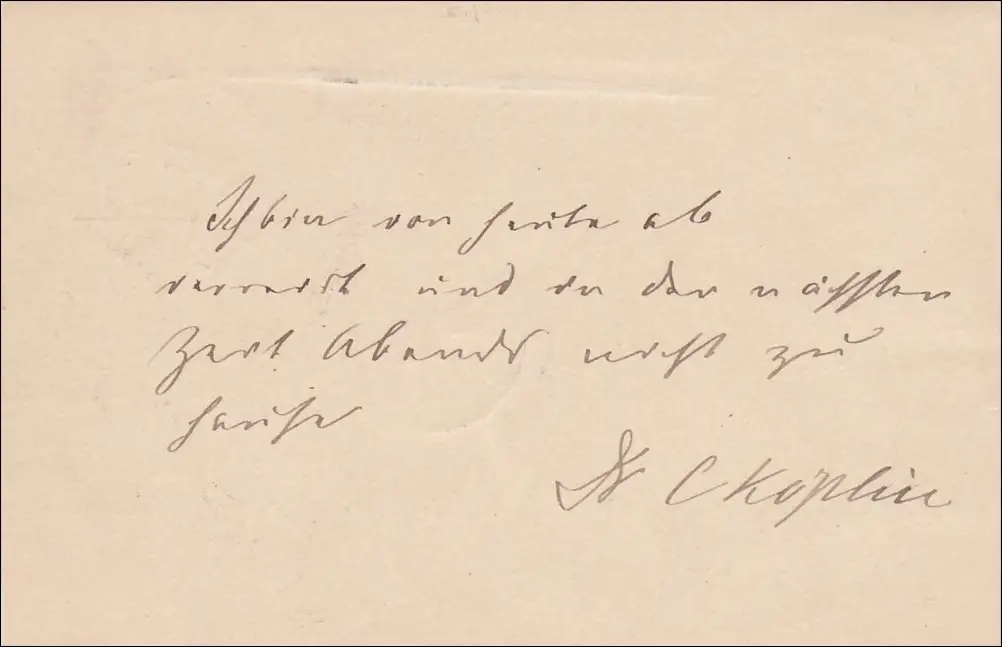 Ich bin von heute ab
verreist und in der nächsten
Zeit Abends nicht zu
hause
Dr C Köplin